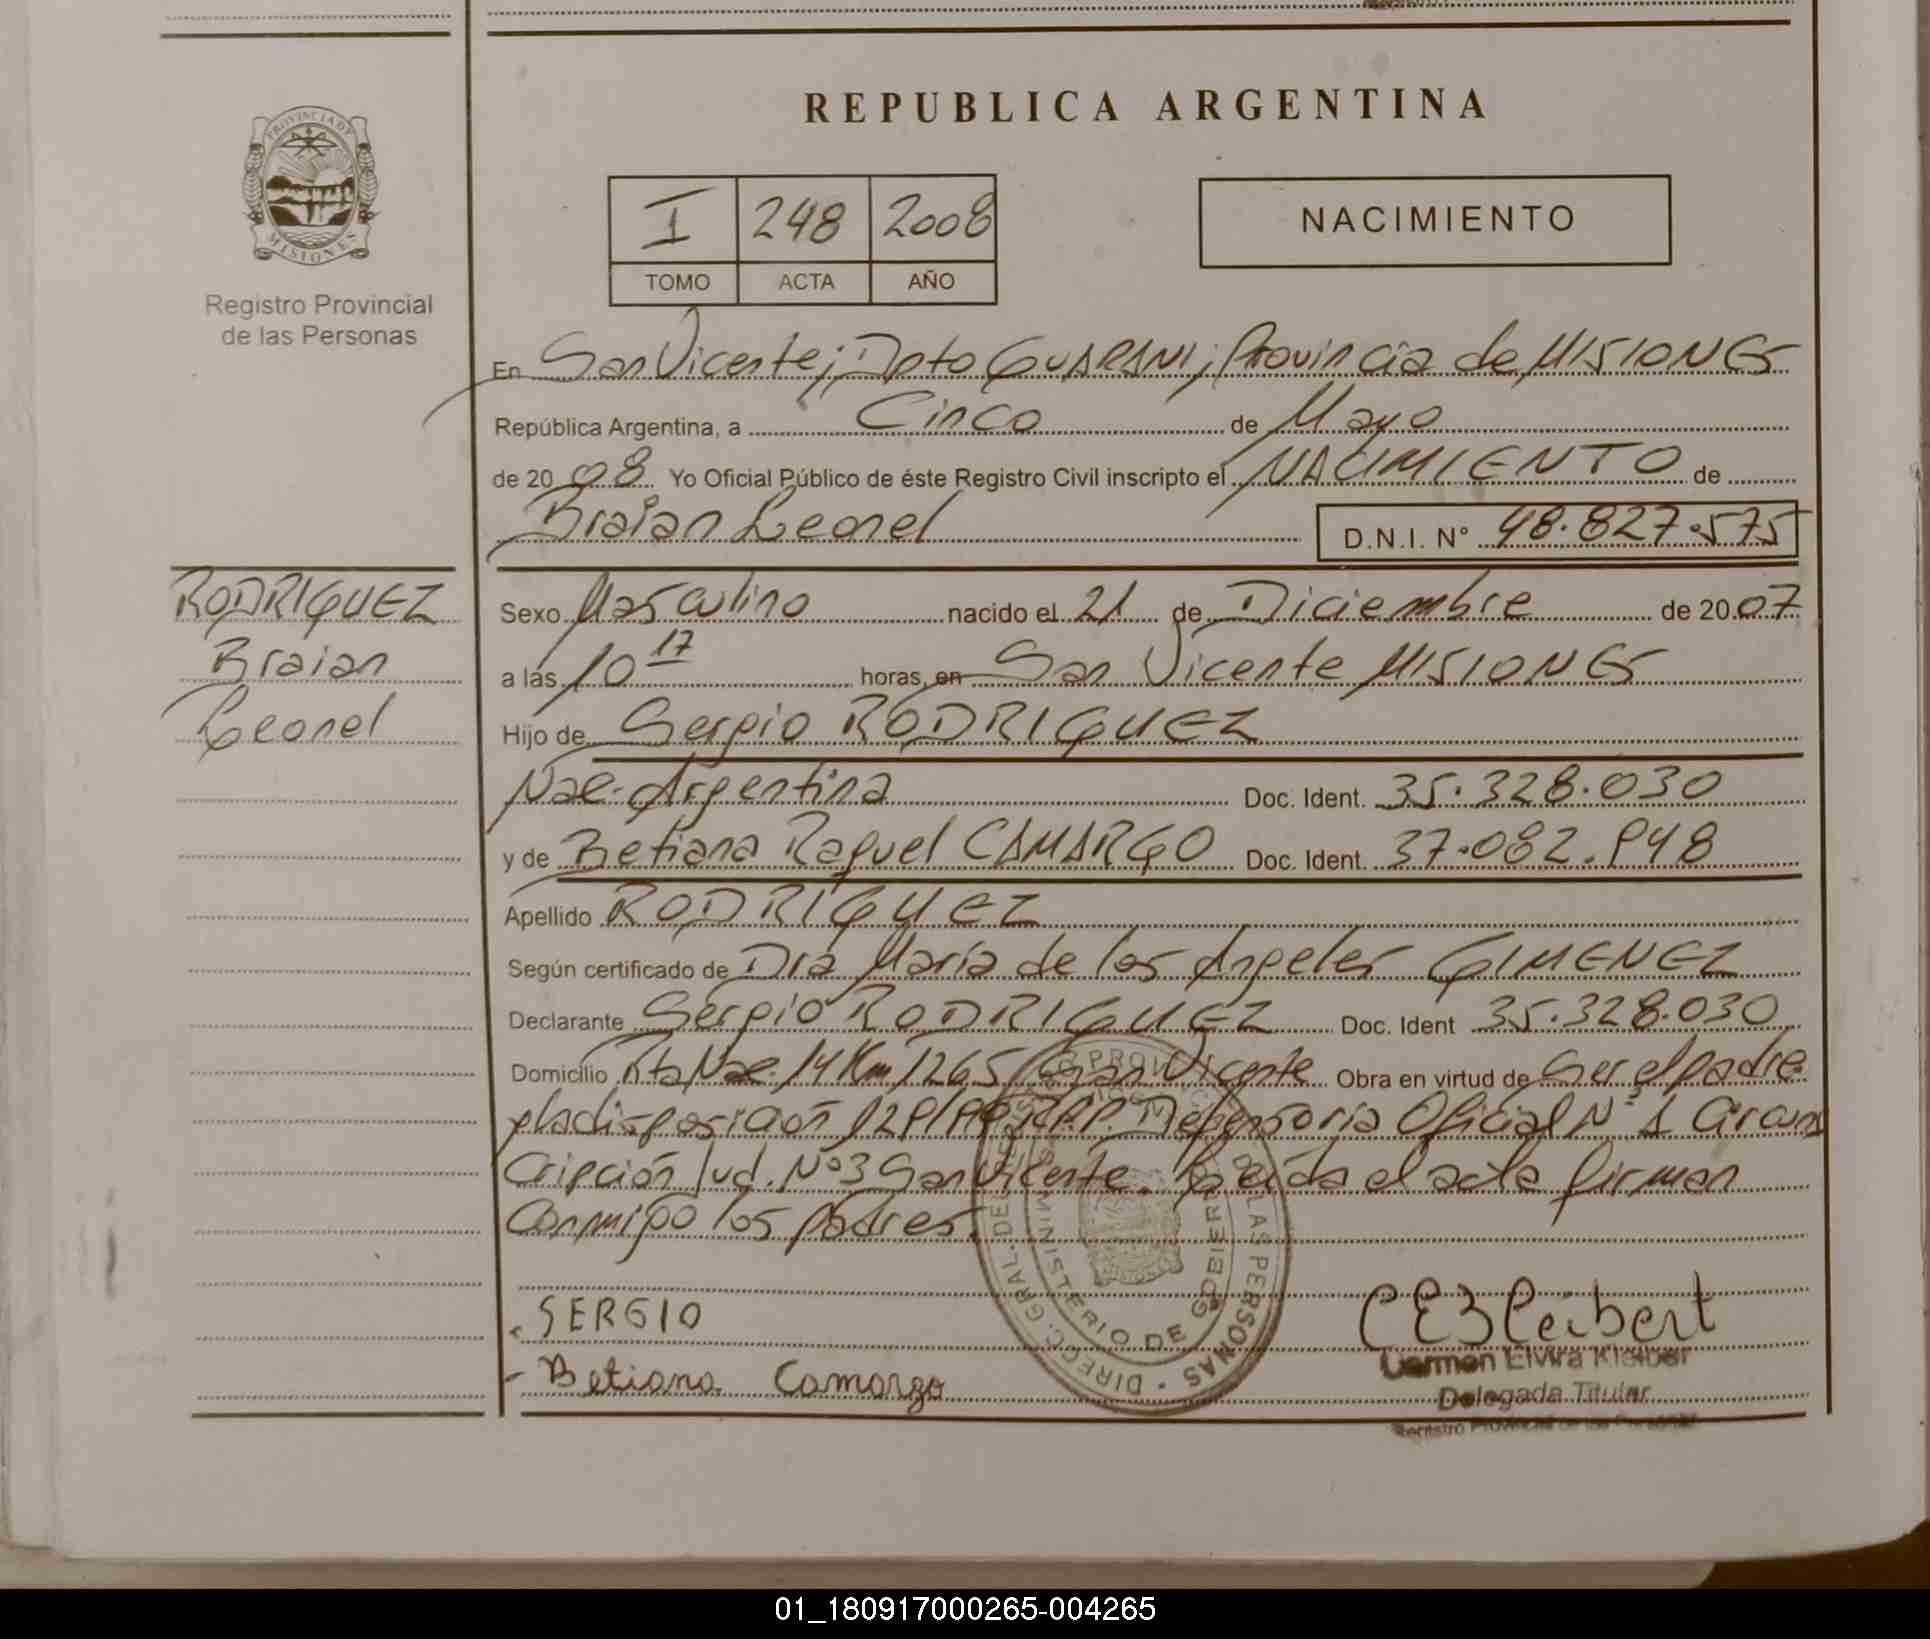 REPUBLICA ARGENTINA
PROVINCIA DE
MISIONES
Registro Provincial
de las Personas
I 248 2008
TOMO ACTA AÑO
NACIMIENTO
En San Vicente; Dpto GUARANI; Provincia de MISIONES
República Argentina, a Cinco de Mayo
de 20 08 Yo Oficial Público de éste Registro Civil inscripto el NACIMIENTO de
Braian Leonel D.N.I. N° 48.827.575
RODRIGUEZ
Braian
Leonel
Sexo Masculino nacido el 21 de Diciembre de 20 07
a las 10 17 horas, en San Vicente MISIONES
Hijo de Sergio RODRIGUEZ
Nac. Argentina Doc. Ident. 35.328.030
y de Betiana Raquel CAMARGO Doc. Ident. 37.082.948
Apellido RODRIGUEZ
Según certificado de Dra María de los Angeles GIMENEZ
Declarante Sergio RODRIGUEZ Doc. Ident 35.328.030
Domicilio Rta Nac. 14 Km 1265 San Vicente Obra en virtud de Ser el padre
y la disposición Defensoria Oficial N° 1 Circuns
Cripción Jud. N°3 San Vicente. Leída el acta firman
Conmigo los padres.
SERGIO
Betiana Camargo
DIRECC. GRAL. DEL REGISTRO PROVINCIAL DE LAS PERSONAS
MINISTERIO DE GOBIERNO
CEKleibert
Carmen Elvira Kleiber
Delegada Titular
Registro Provincial de las Personas
01_180917000265-004265